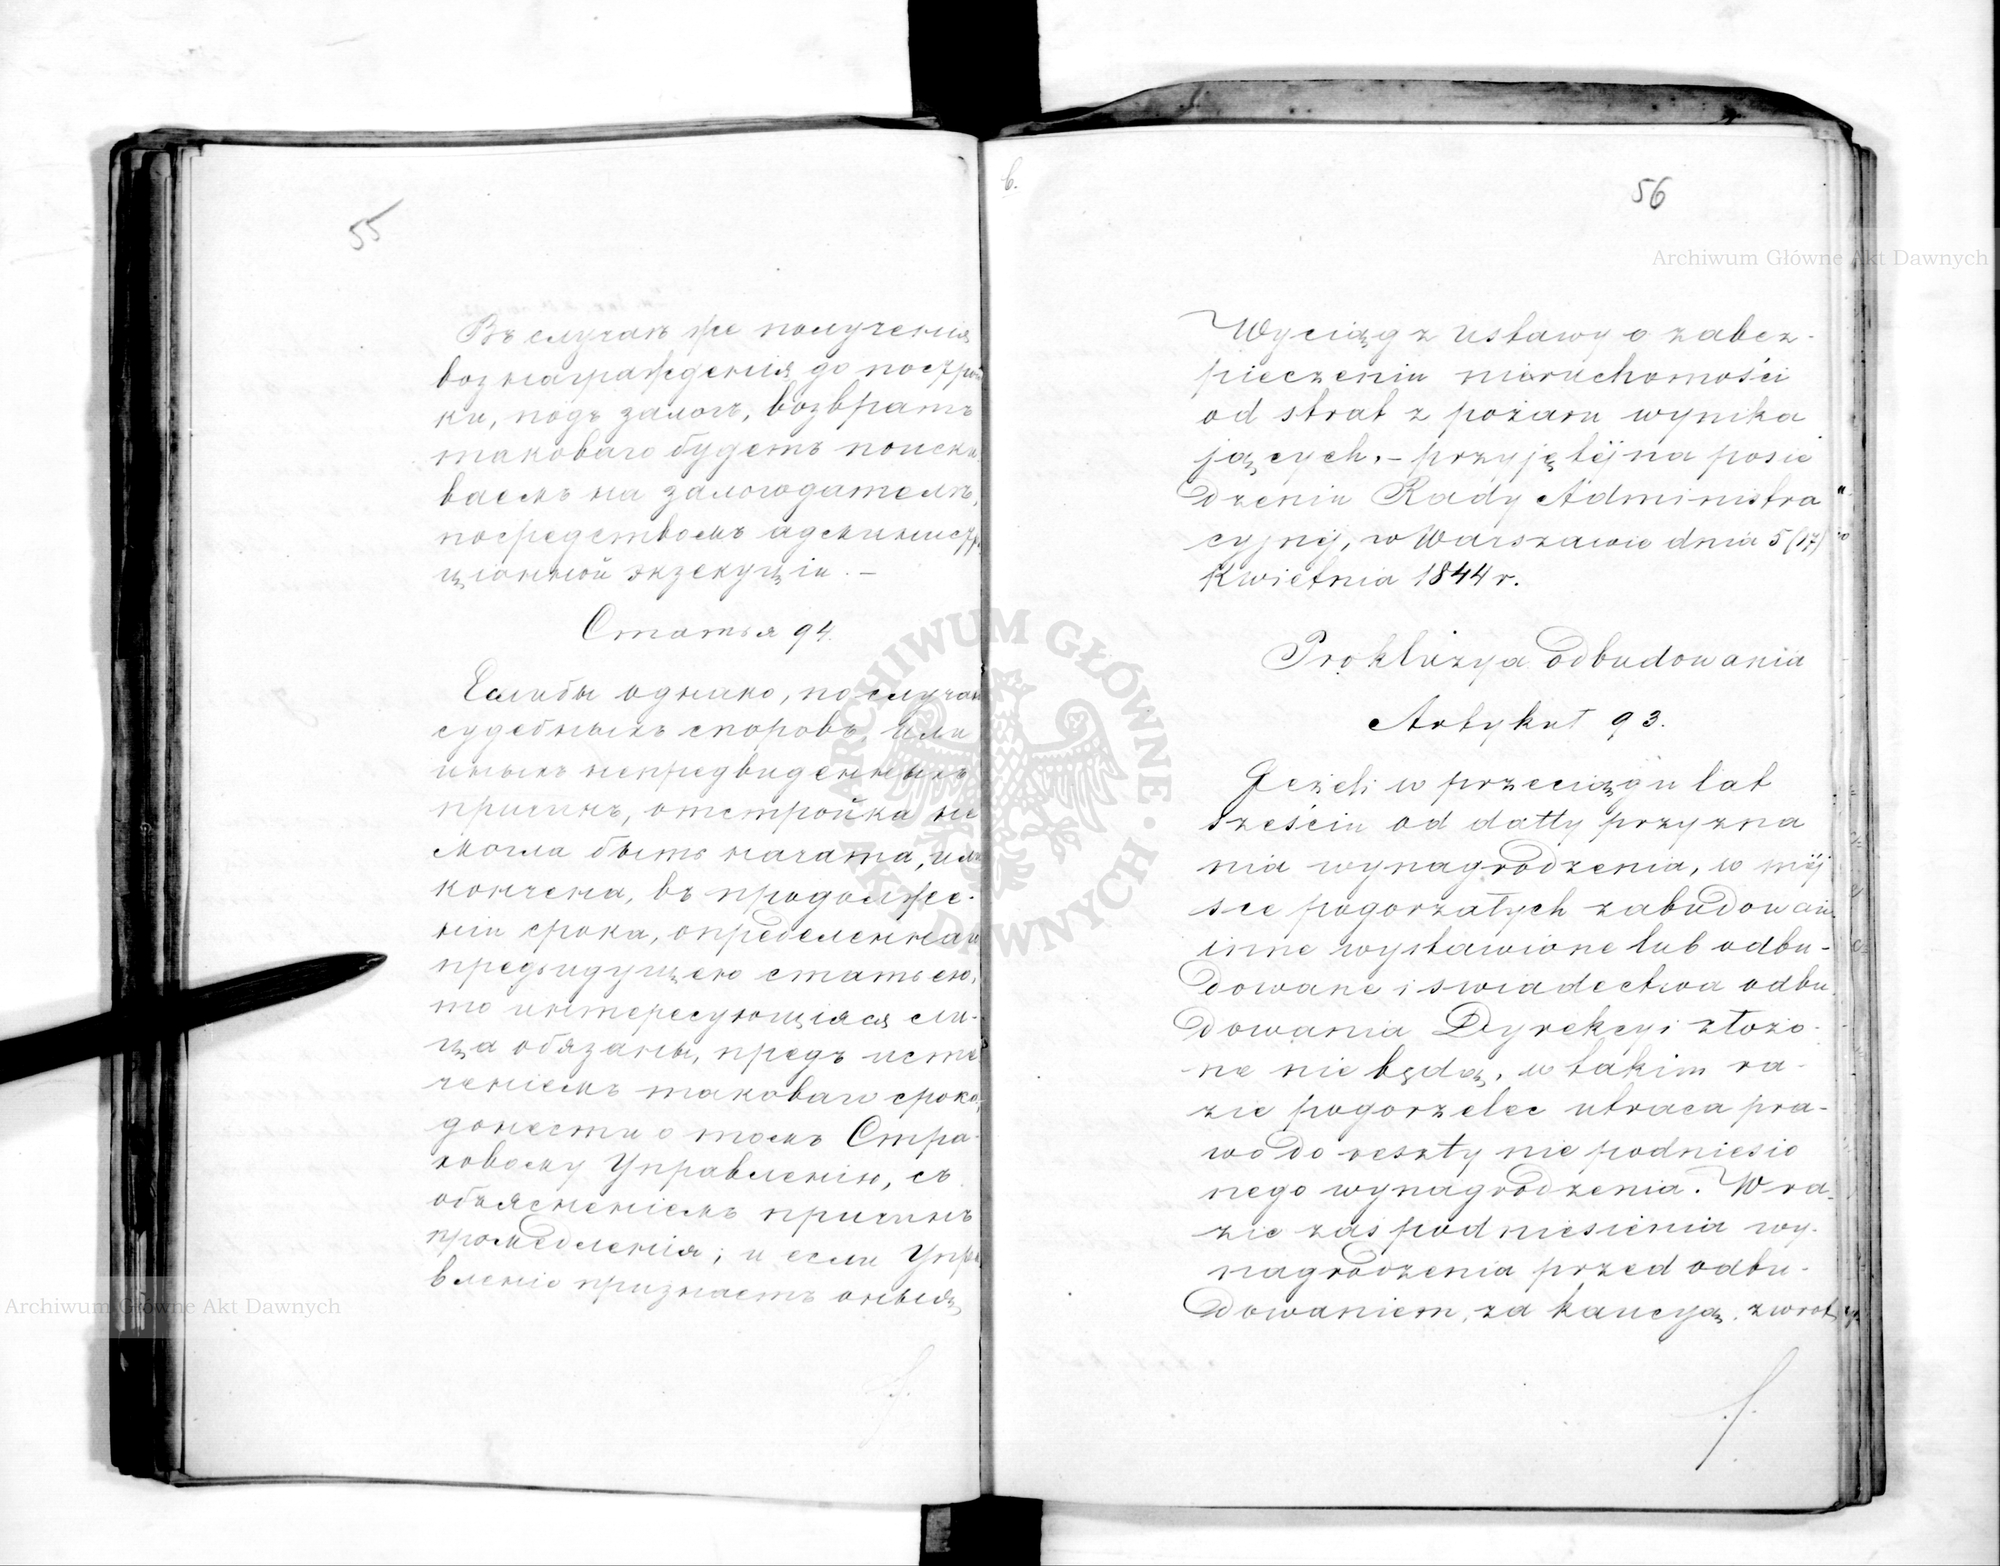 55
Въ случаѣ же полученія
вознагражденія до построй
ки, подъ залогъ, возвратъ
таковаго будетъ поиски
ваемъ на залогодателѣ,
посредствомъ администра
ціонной экзекуціи. –
Статья 94.
Еслибы однако, по случаю
судебныхъ споровъ, или
иныхъ непредвиденныхъ
причинъ, отстройка не
могла быть начата, или
кончена, въ продолже-
ніи срока, определеннаго
предъидущею статьею,
то интересующіяся ли-
ца обязаны, предъ исте
ченіемъ таковаго срока,
донести о томъ Стра-
ховому Управленію, съ
объясненіемъ причинъ
промедленія; и если Упра
вленіе признаетъ оныя,
6.
56
Wyciąg z ustawy o zabez-
pieczeniu nieruchomości
od strat z pożaru wynika
jących. – przyjętéj na posie
dzeniu Rady Administra
cyjnéj, w Warszawie dnia 5 (17)
Kwietnia 1844 r.
Prekluzya odbudowania
Artykuł 93.
Jeżeli w przeciągu lat
sześciu od datty przyzna
nia wynagrodzenia, w miéj
sce pogorzałych zabudowań
inne wystawione lub odbu-
dowane i swiadectwa odbu
dowania Dyrekcyi złożo-
ne nie będą, w takim ra-
zie pogorzelec utraca pra-
wo do reszty nie podniesio
nego wynagrodzenia. W ra
zie zaś podniesienia wy-
nagrodzenia przed odbu-
dowaniem, za kaucyą, zwrot
Archiwum Główne Akt Dawnych
Archiwum Główne Akt Dawnych
ARCHIWUM GŁÓWNE AKT DAWNYCH